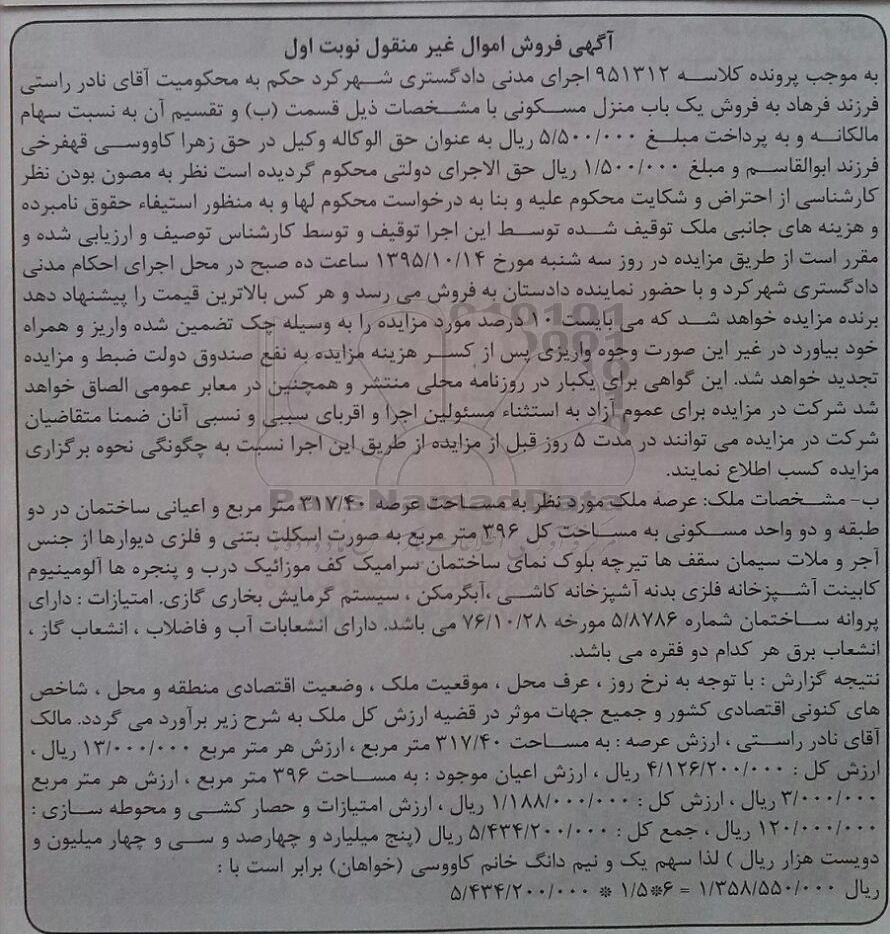 آگهی فروش اموال غیر منقول نوبت اول
به موجب پرونده کلاسه ۹۵۱۳۱۲ اجرای مدنی دادگستری شهرکرد حکم به محکومیت آقای نادر راستی
فرزند فرهاد به فروش یک باب منزل مسکونی با مشخصات ذیل قسمت (ب) و تقسیم آن به نسبت سهام
مالکانه و به پرداخت مبلغ ۵/۵۰۰/۰۰۰ ریال به عنوان حق الوکاله وکیل در حق زهرا کاووسی قهفرخی
فرزند ابوالقاسم و مبلغ ۱/۵۰۰/۰۰۰ ریال حق الاجرای دولتی محکوم گردیده است نظر به مصون بودن نظر
کارشناسی از احتراض و شکایت محکوم علیه و بنا به درخواست محکوم لها و به منظور استیفاء حقوق نامبرده
و هزینه های جانبی ملک توقیف شده توسط این اجرا توقیف و توسط کارشناس توصیف و ارزیابی شده و
مقرر است از طریق مزایده در روز سه شنبه مورخ ۱۳۹۵/۱۰/۱۴ ساعت ده صبح در محل اجرای احکام مدنی
دادگستری شهرکرد و با حضور نماینده دادستان به فروش می رسد و هر کس بالاترین قیمت را پیشنهاد دهد
برنده مزایده خواهد شد که می بایست ۱۰ درصد مورد مزایده را به وسیله چک تضمین شده واریز و همراه
خود بیاورد در غیر این صورت وجوه واریزی پس از کسر هزینه مزایده به نفع صندوق دولت ضبط و مزایده
تجدید خواهد شد. این گواهی برای یکبار در روزنامه محلی منتشر و همچنین در معابر عمومی الصاق خواهد
شد شرکت در مزایده برای عموم آزاد به استثناء مسئولین اجرا و اقربای سببی و نسبی آنان ضمنا متقاضیان
شرکت در مزایده می توانند در مدت ۵ روز قبل از مزایده از طریق این اجرا نسبت به چگونگی نحوه برگزاری
مزایده کسب اطلاع نمایند.
ب- مشخصات ملک: عرصه ملک مورد نظر به مساحت عرصه ۳۱۷/۴۰ متر مربع و اعیانی ساختمان در دو
طبقه و دو واحد مسکونی به مساحت کل ۳۹۶ متر مربع به صورت اسکلت بتنی و فلزی دیوارها از جنس
آجر و ملات سیمان سقف ها تیرچه بلوک نمای ساختمان سرامیک کف موزائیک درب و پنجره ها آلومینیوم
کابینت آشپزخانه فلزی بدنه آشپزخانه کاشی ،آبگرمکن ، سیستم گرمایش بخاری گازی. امتیازات : دارای
پروانه ساختمان شماره ۵/۸۷۸۶ مورخه ۷۶/۱۰/۲۸ می باشد. دارای انشعابات آب و فاضلاب ، انشعاب گاز ،
انشعاب برق هر کدام دو فقره می باشد.
نتیجه گزارش : با توجه به نرخ روز ، عرف محل ، موقعیت ملک ، وضعیت اقتصادی منطقه و محل ، شاخص
های کنونی اقتصادی کشور و جمیع جهات موثر در قضیه ارزش کل ملک به شرح زیر برآورد می گردد. مالک
آقای نادر راستی ، ارزش عرصه : به مساحت ۳۱۷/۴۰ متر مربع ، ارزش هر متر مربع ۱۳/۰۰۰/۰۰۰ ریال ،
ارزش کل : ۴/۱۲۶/۲۰۰/۰۰۰ ریال ، ارزش اعیان موجود : به مساحت ۳۹۶ متر مربع ، ارزش هر متر مربع
۳/۰۰۰/۰۰۰ ریال ، ارزش کل : ۱/۱۸۸/۰۰۰/۰۰۰ ریال ، ارزش امتیازات و حصار کشی و محوطه سازی :
۱۲۰/۰۰۰/۰۰۰ ریال ، جمع کل : ۵/۴۳۴/۲۰۰/۰۰۰ ریال (پنج میلیارد و چهارصد و سی و چهار میلیون و
دویست هزار ریال ) لذا سهم یک و نیم دانگ خانم کاووسی (خواهان) برابر است با :
ریال ۱/۳۵۸/۵۵۰/۰۰۰ = ۶*۱/۵ * ۵/۴۳۴/۲۰۰/۰۰۰
ParsNamadData